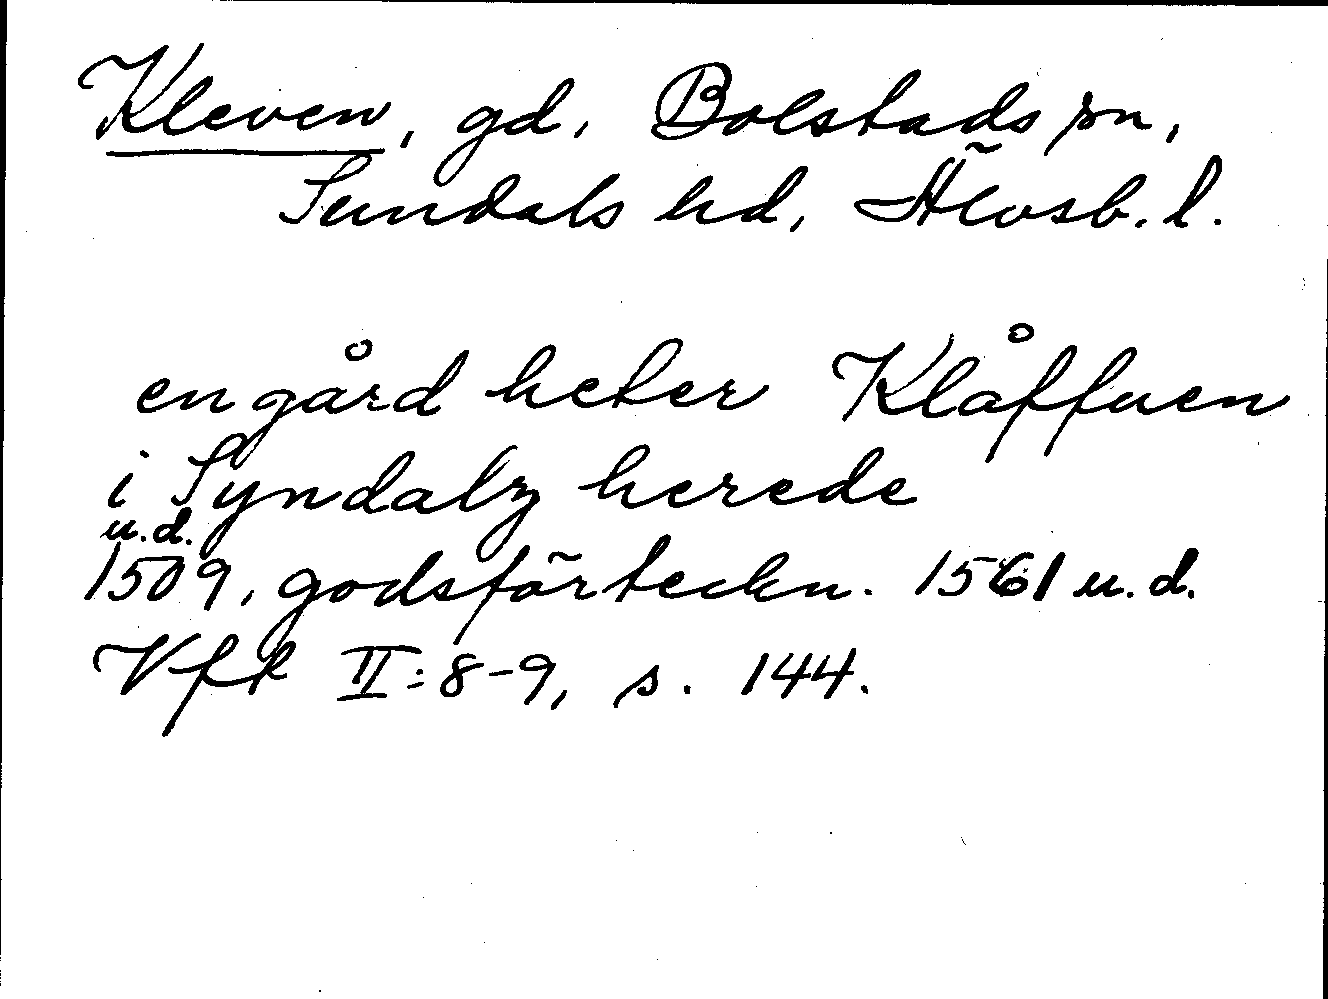 Kleven, gd, Bolstads sn,
Sundals hd, Älvsb. l.
en gård heter Klåffuen
i Syndalz herede
u.d.
1509, godsförteckn. 1561 u.d.
Vfk II:8-9, s. 144.